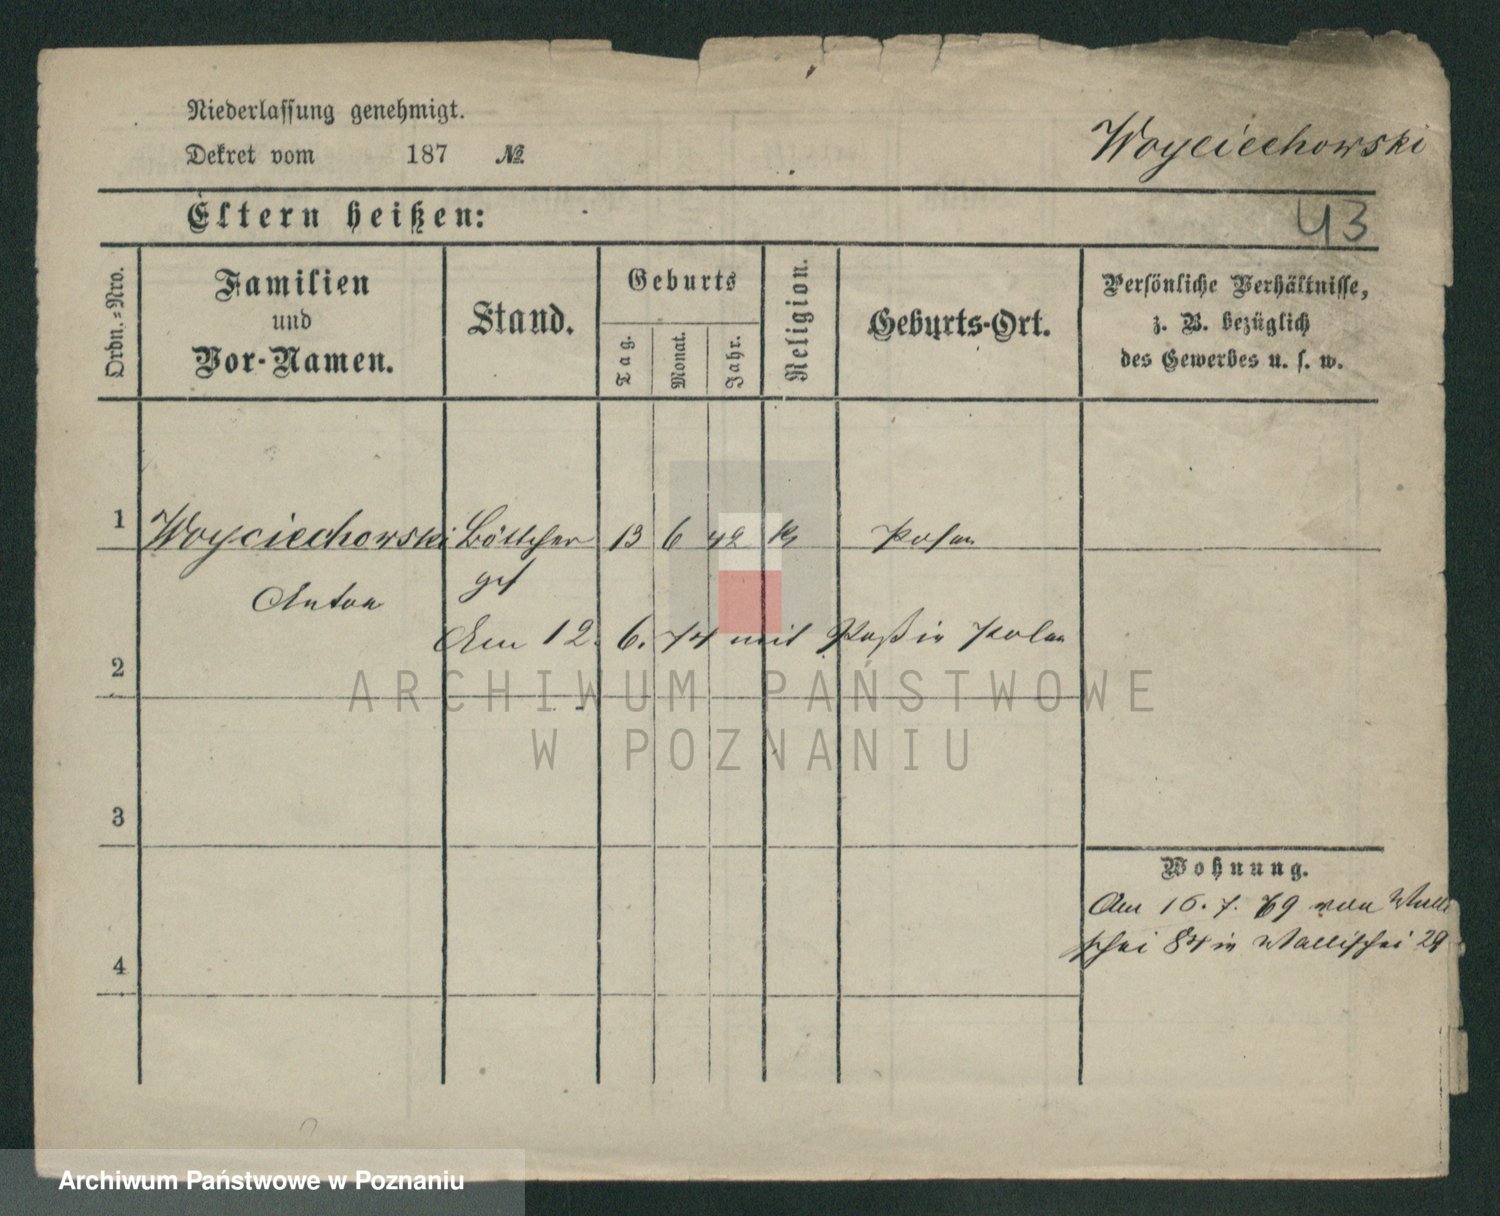 Niederlassung genehmigt.
Dekret vom 187 №
Woyciechowski
Eltern heißen:
43
Ordn.-Nro.
Familien
und
Vor-Namen.
Stand.
Geburts
Tag.
Monat.
Jahr.
Religion.
Geburts-Ort.
Persönliche Verhältnisse,
z. B. bezüglich
des Gewerbes u. s. w.
1 Woyciechowski Böttcher 13 6 42 Posen
Anton
Am 12. 6. 74 mit Paß in Polen
2
ARCHIWUM PAŃSTWOWE
W POZNANIU
3
Wohnung.
Am 16. 7. 79 von Walli
schei 84 in Wallischei 29
4
Archiwum Państwowe w Poznaniu